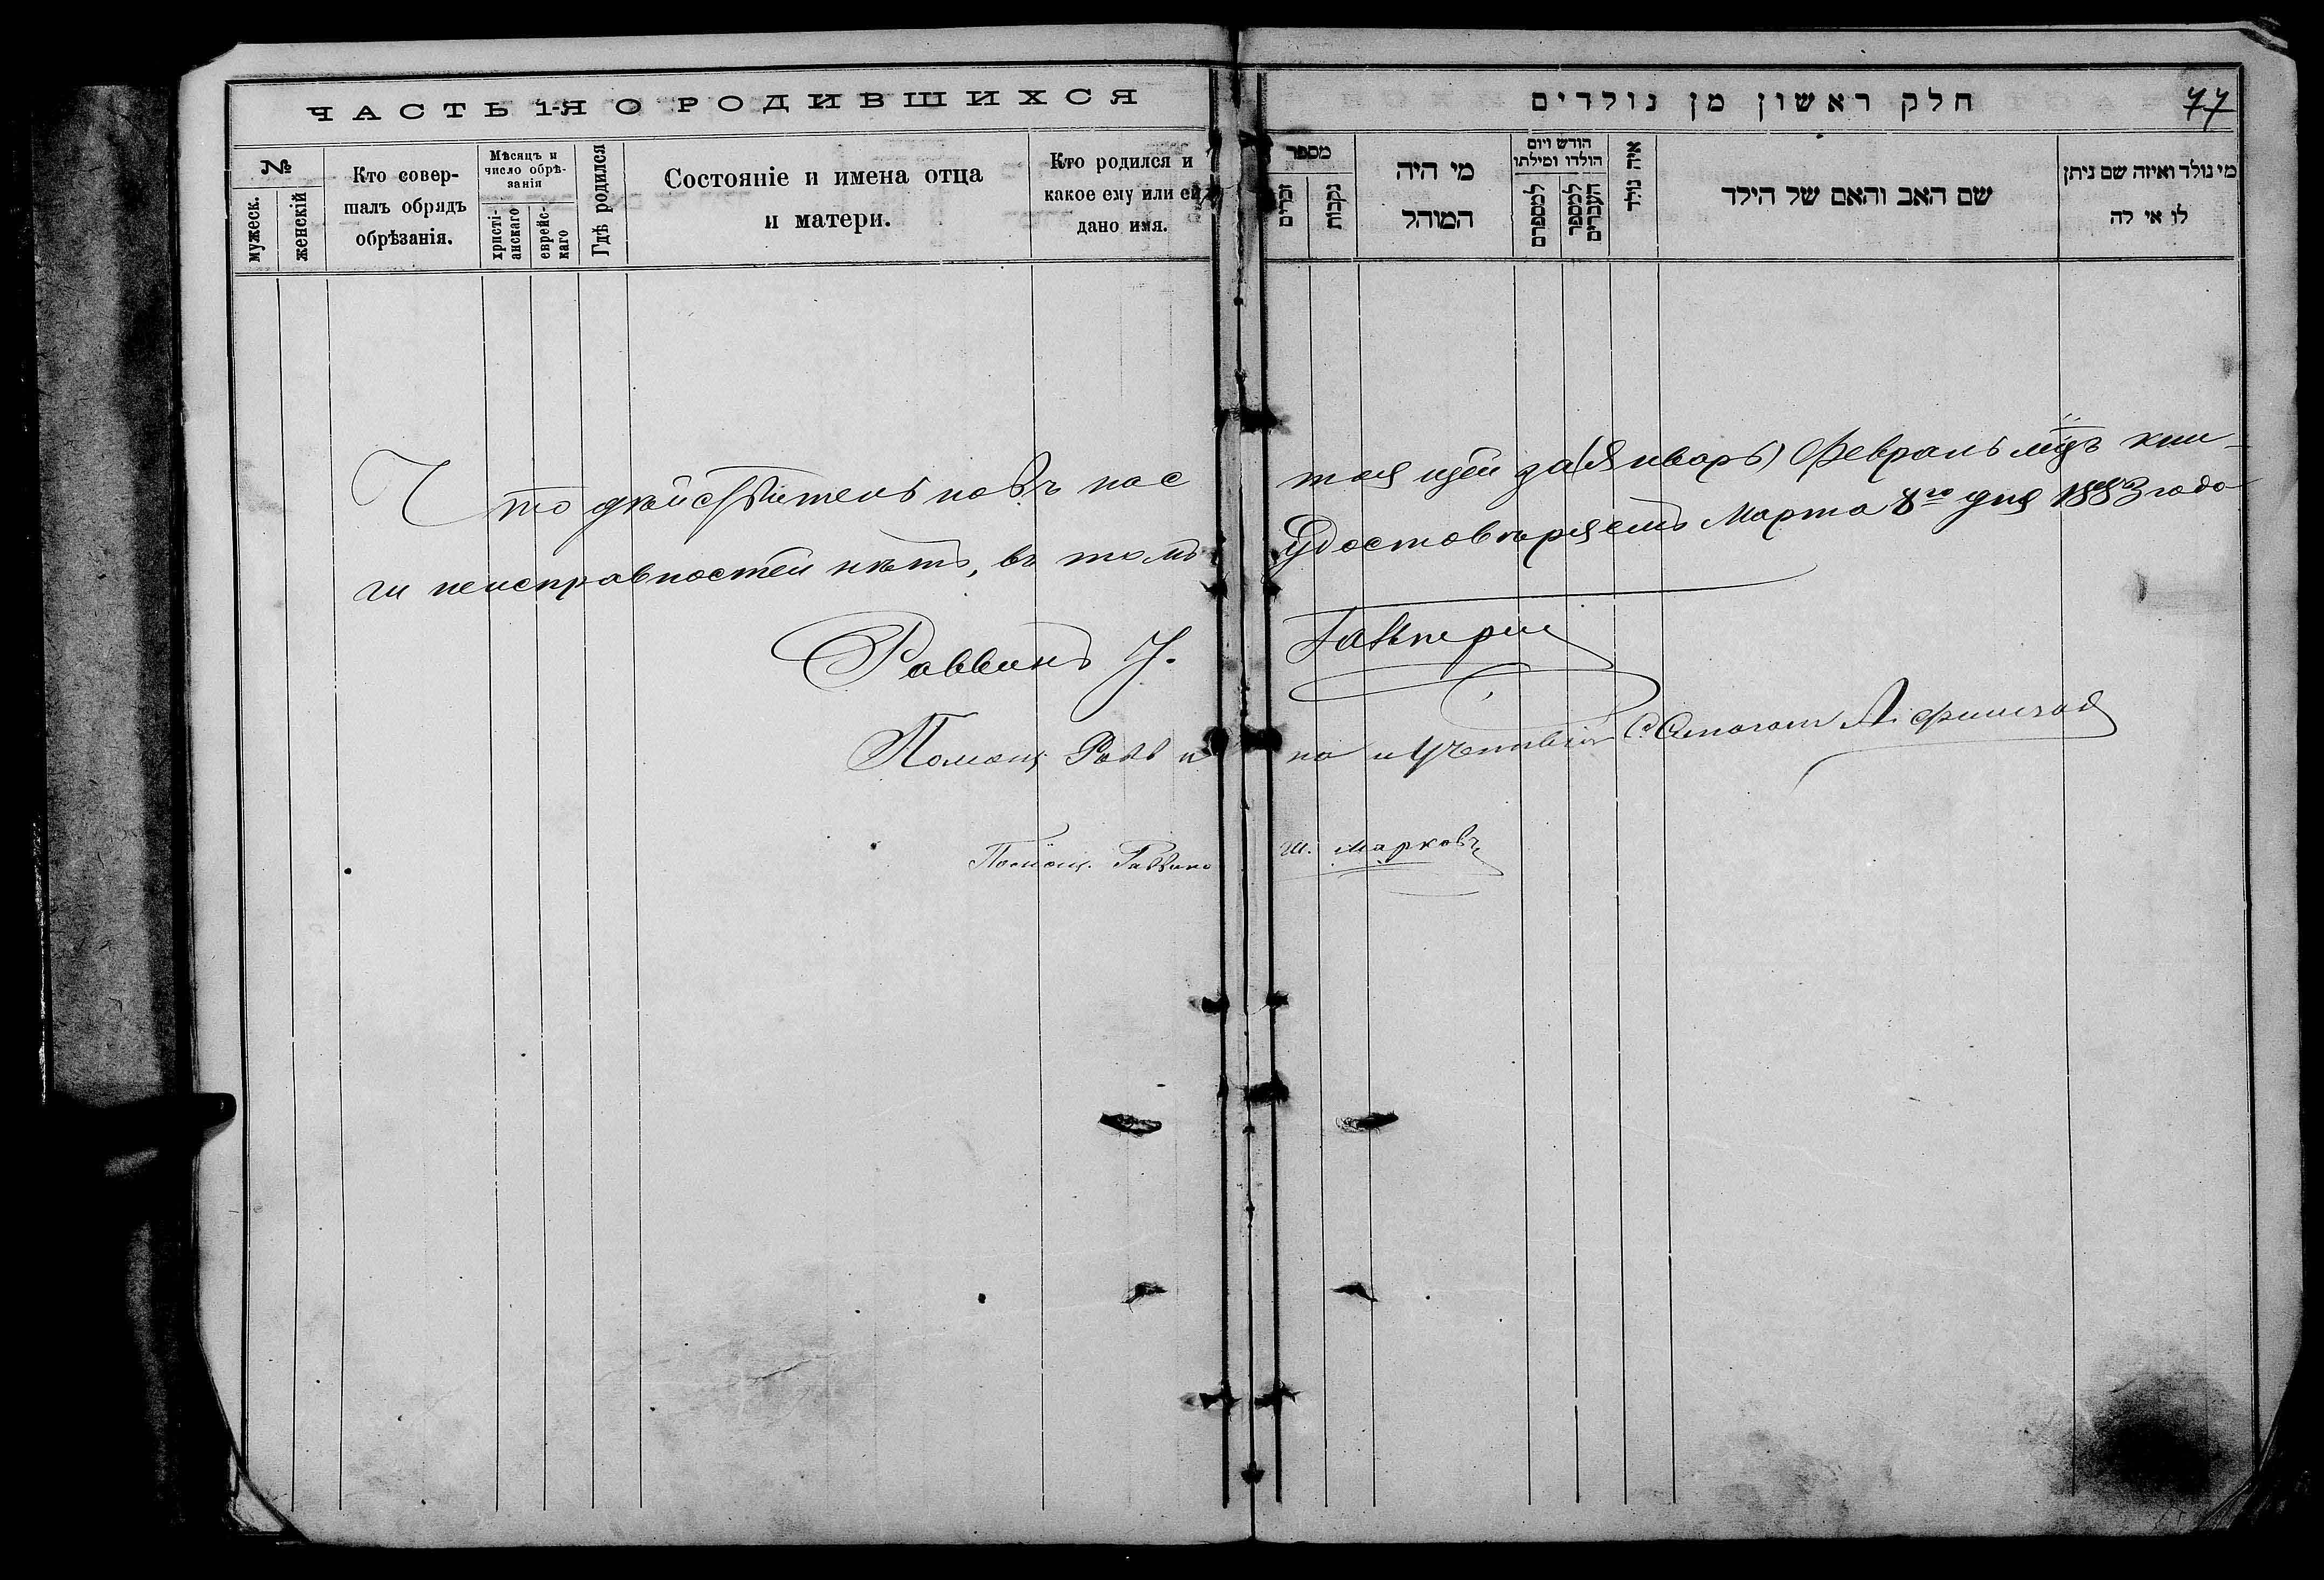 ЧАСТЬ 1-Я О РОДИВШИХСЯ
№
мужеск.
женскій
Кто совер-
шалъ обрядъ
обрѣзанія.
Мѣсяцъ и
число обрѣ-
занія
христі-
анскаго
еврейс-
каго
Гдѣ родился
Состояніе и имена отца
и матери.
Кто родился и
какое ему или ей
дано имя.
חלק ראשון מן נולדים
77
מספר
זכרים
נקבות
מי היה
המוהל
חודש ויום
הולדו ומילתו
למספרם
למספר
העברים
איה נולד
שם האב והאם של הילד
מי נולד ואיזה שם ניתן
לו אי לה
Что дѣйствительно въ настоящей за (Январь) Февраль мцъ кни-
ги неисправностей нѣтъ, въ томъ Удостовѣряемъ Марта 8го дня 1883 года
Раввинъ
Помощ. Раввина и
Помощ. Раввина Ш. Марковъ